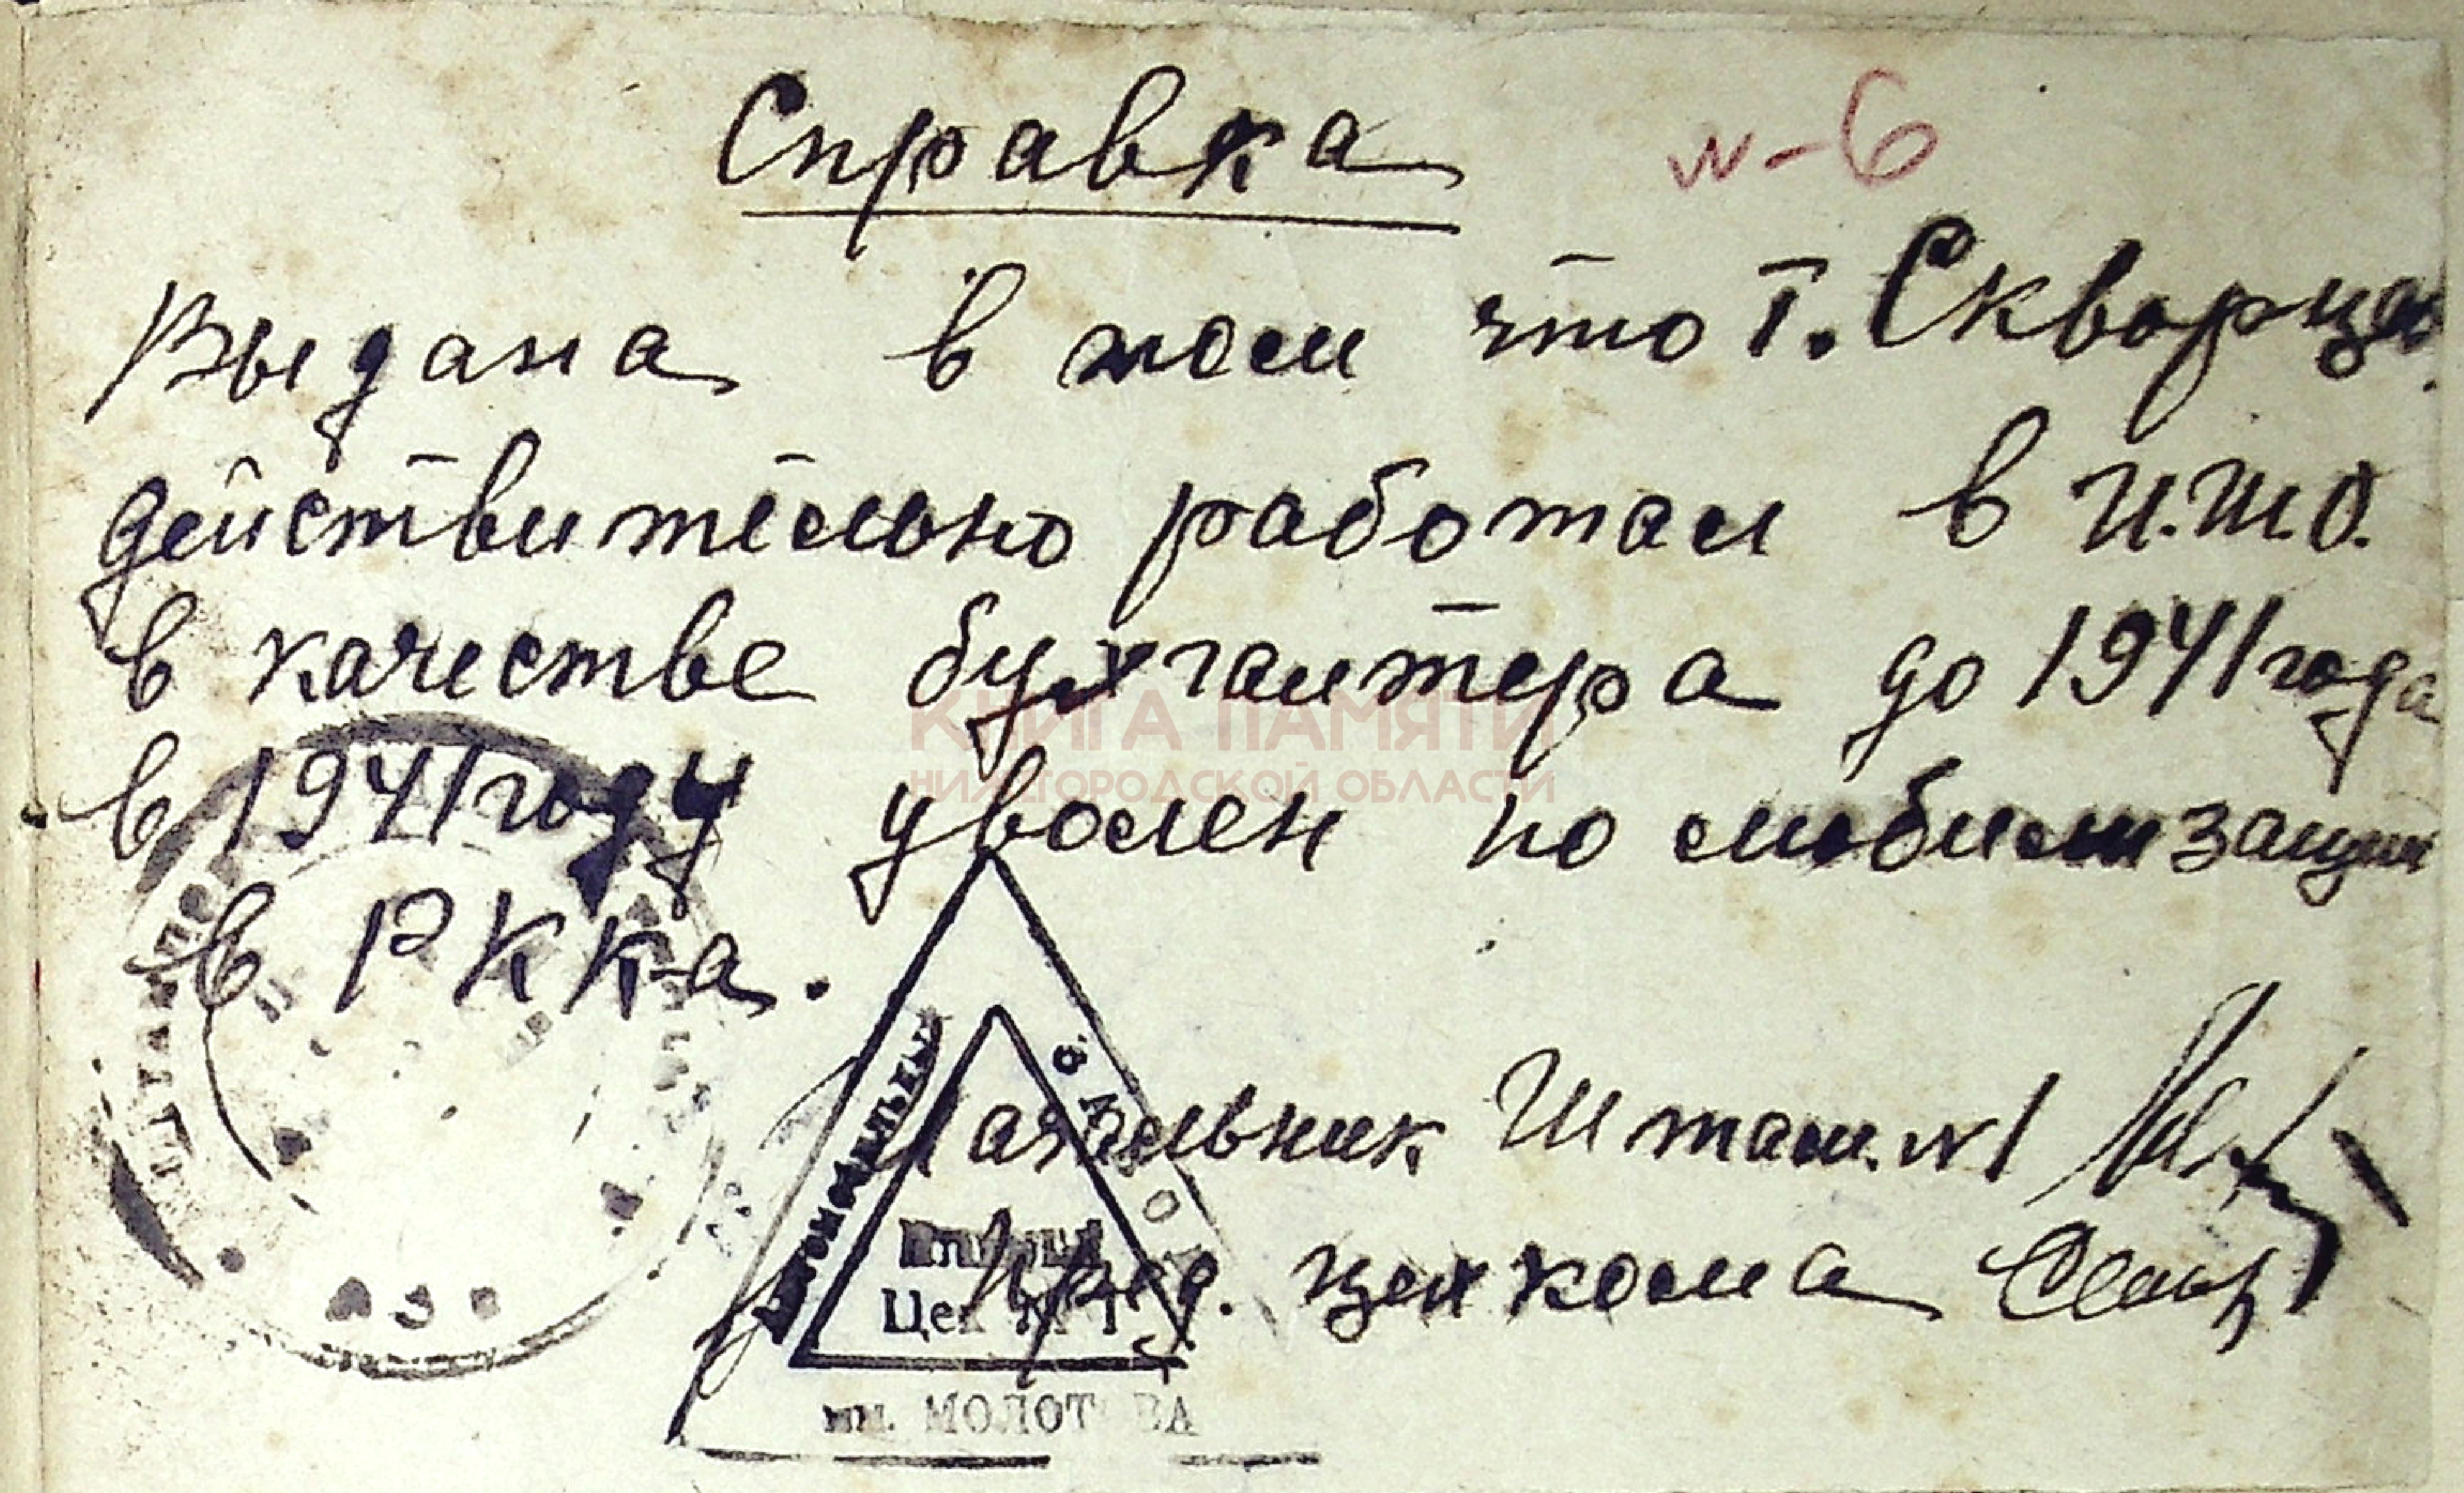 Справка
N-6
Выдана в том что т. Скворцов
действительно работал в И.Ш.О.
в качестве бухгалтера до 1941 года
в 1941 году уволен по мобилизации
в РККа.
КНИГА ПАМЯТИ
НИЖЕГОРОДСКОЙ ОБЛАСТИ
Начальник Штамп. N1
Пред. цехкома
Цех № 1
им. МОЛОТОВА